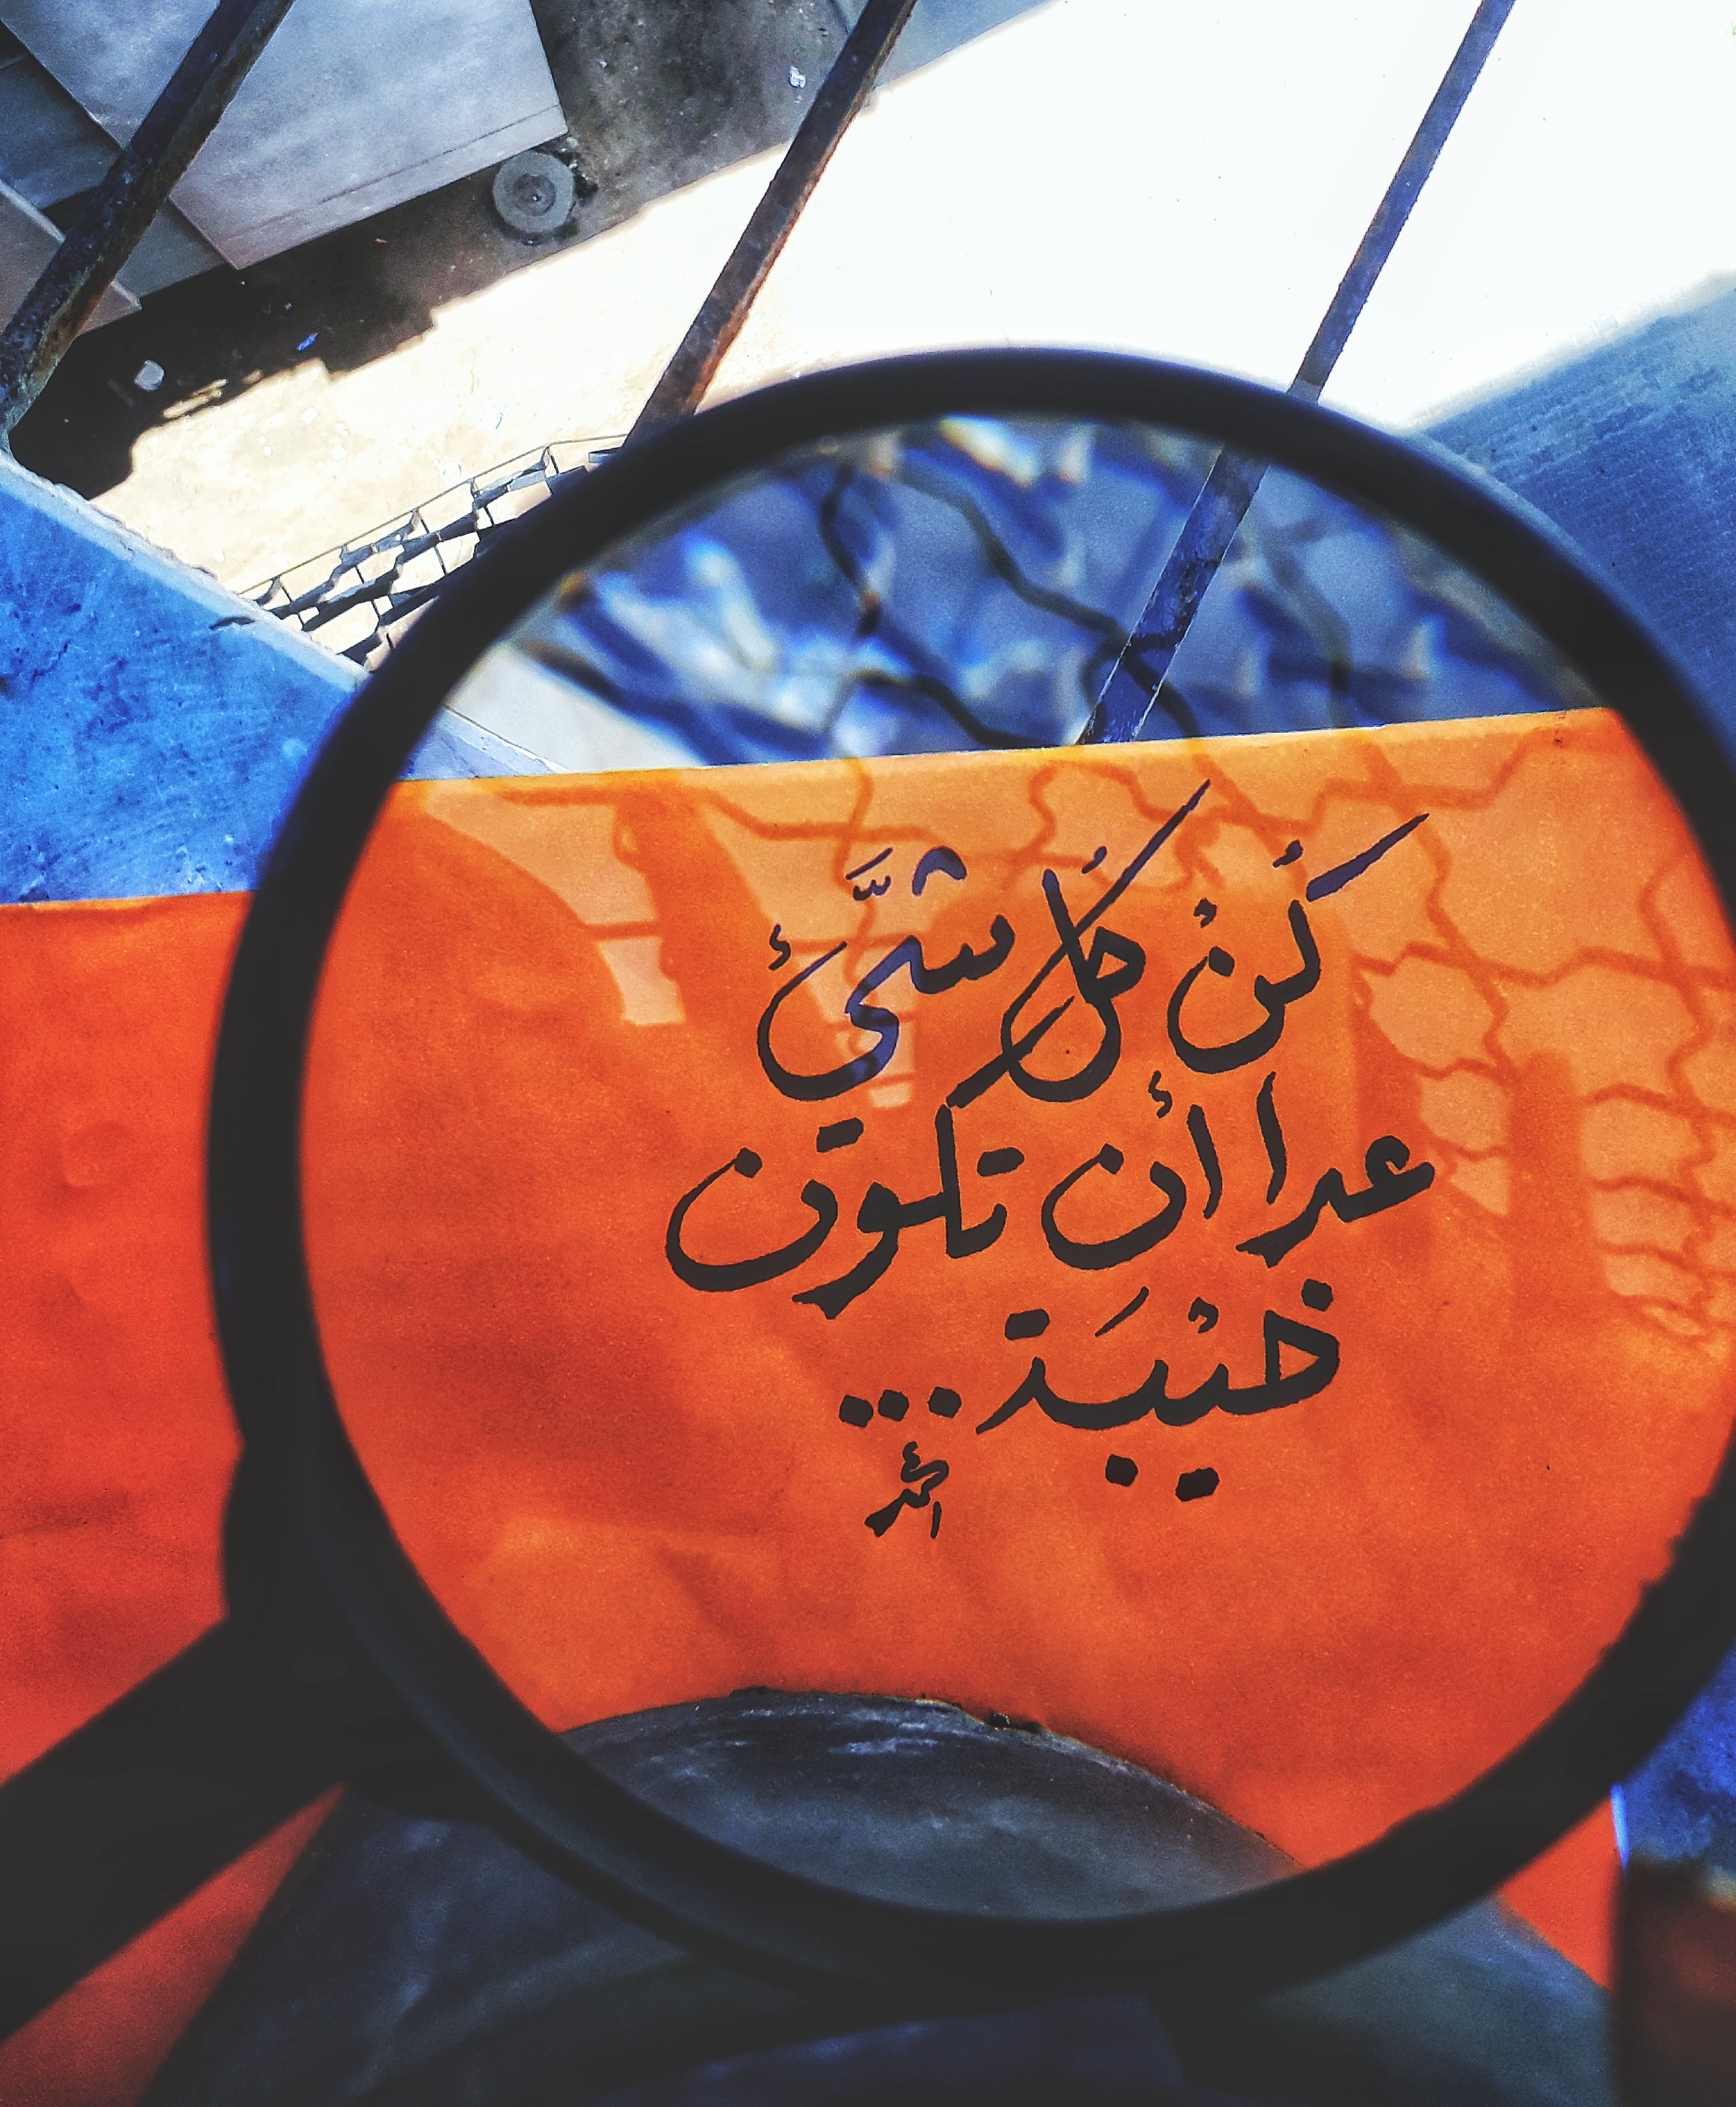 كُنْ كُلَّ شيَّئ
عدا أن تكون
خيْبَة ...
أحمد